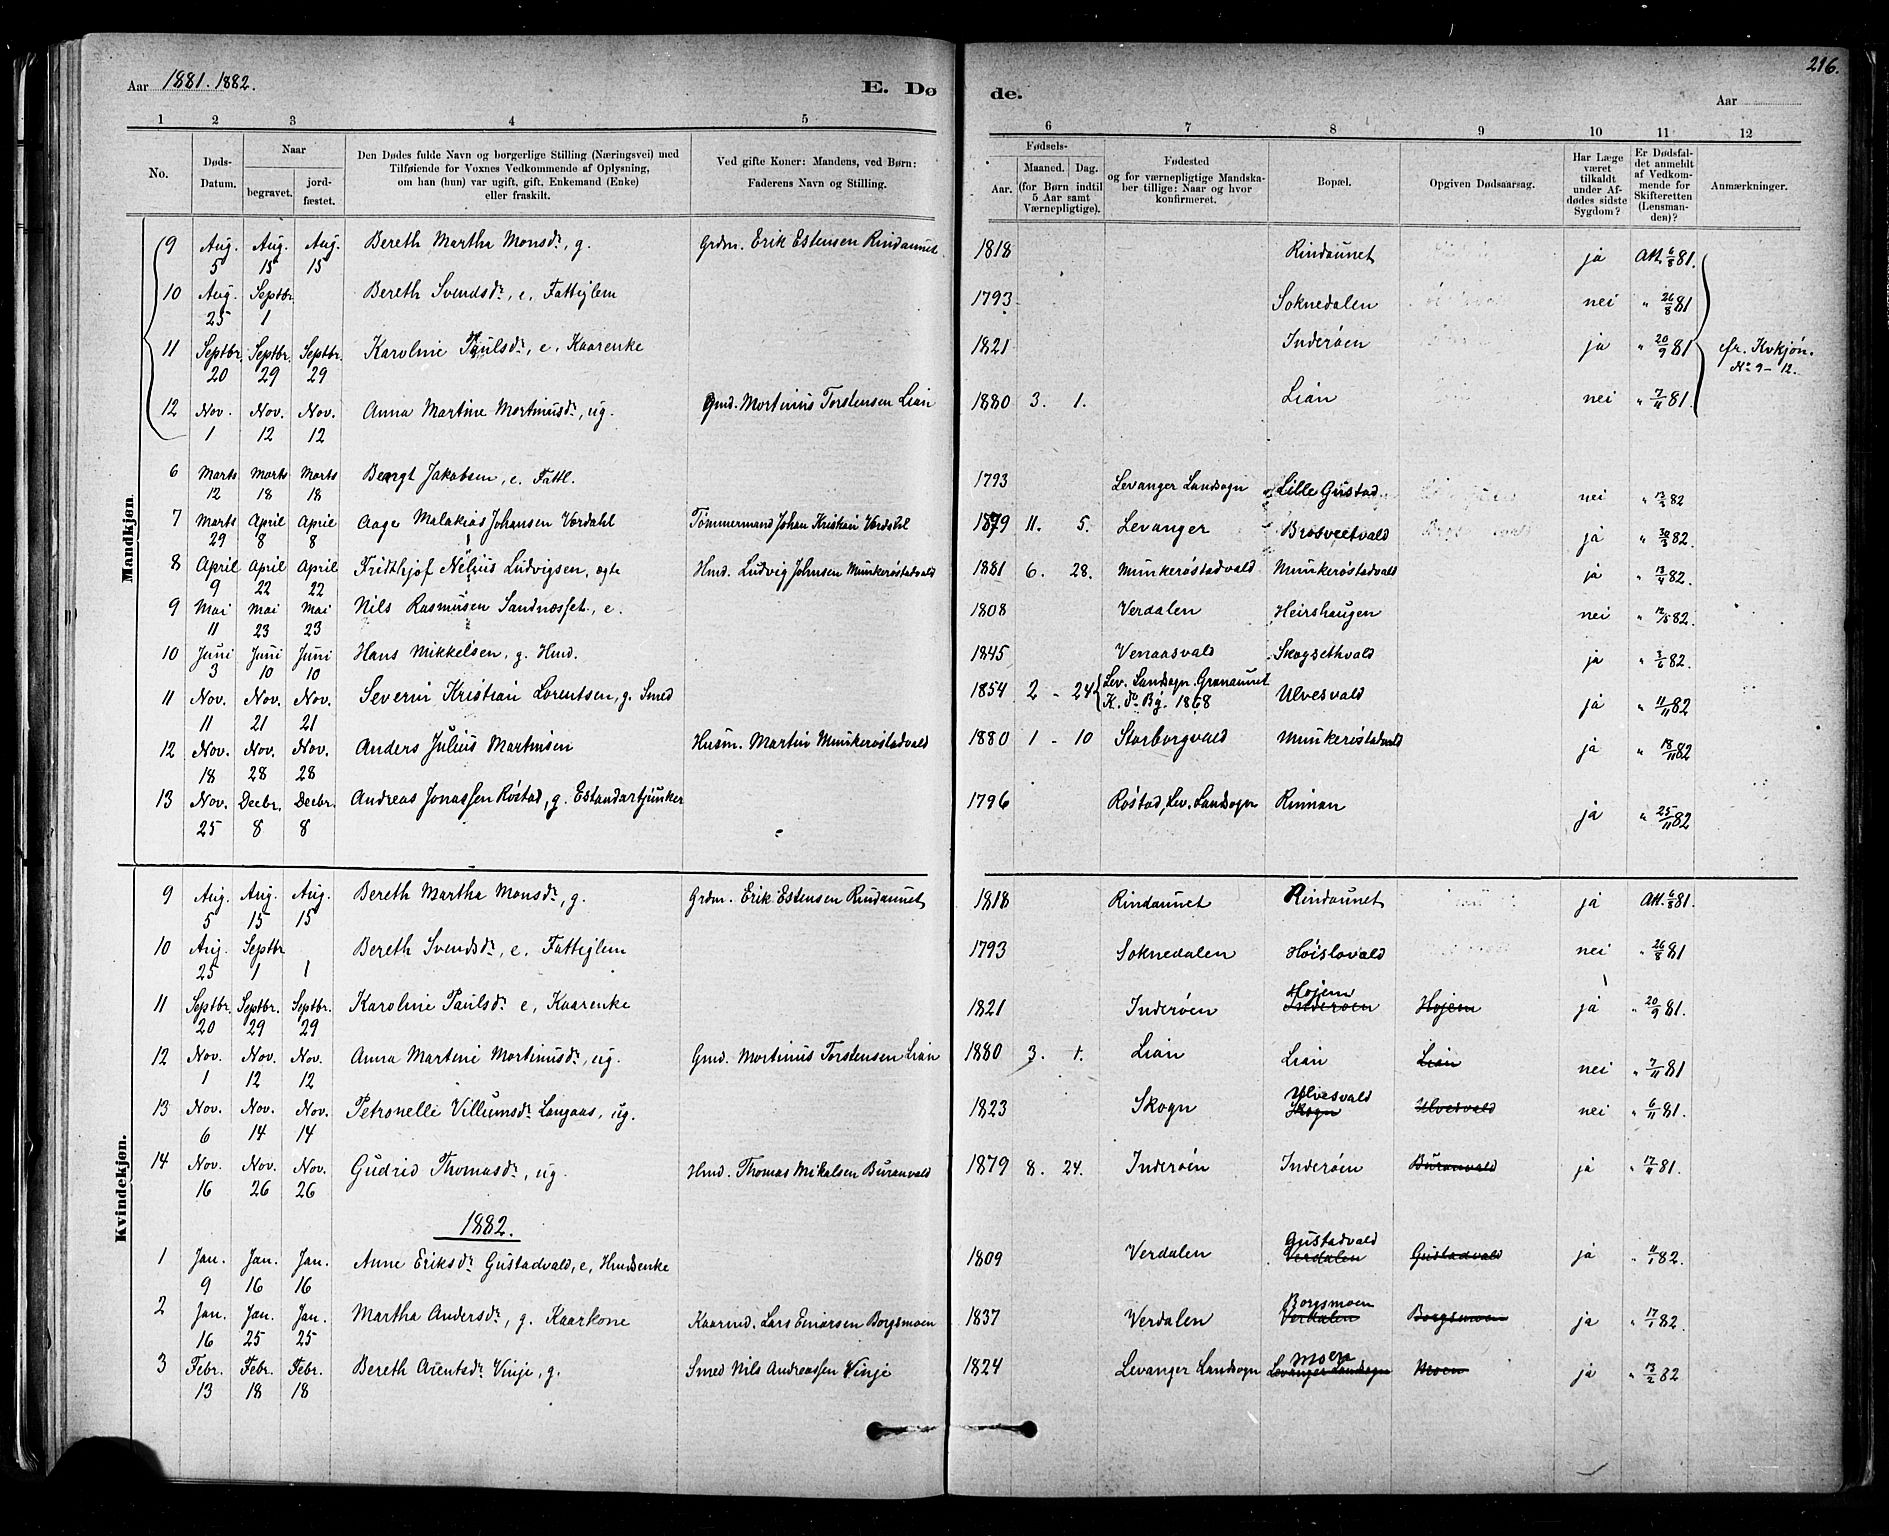 Aar 1881. 1882.
E. Dø de.
216.
Aar
1 2 3 4 5 6 7 8 9 10 11 12
No.
Døds-Datum.
Naar
begravet.
jord-fæstet.
Den Dødes fulde Navn og borgerlige Stilling (Næringsvei) med
Tilføiende for Voxnes Vedkommende af Oplysning,
om han (hun) var ugift, gift, Enkemand (Enke)
eller fraskilt.
Ved gifte Koner: Mandens, ved Børn:
Faderens Navn og Stilling.
Fødsels-
Aar.
Maaned. Dag.
(for Børn indtil
5 Aar samt
Værnepligtige).
Fødested
og for værnepligtige Mandska-
ber tillige: Naar og hvor
konfirmeret.
Bopæl.
Opgiven Dødsaarsag.
Har Læge
været
tilkaldt
under Af-
dødes sidste
Sygdom?
Er Dødsfal-
det anmeldt
af Vedkom-
mende for
Skifteretten
(Lensman-
den)?
Anmærkninger.
Mandkjøn
9 Aug. 5 Aug. 15 Aug. 15 Bereth Martha Monsdr, g. Grdm. Erik Estensen Rindaunet 1818 Rindaunet ja Att. 6/8 81.
10 Aug. 25 Septbr. 1 Bereth Svendsdr, e, Fattiglem 1793 Soknedalen nei " 26/8 81
11 Septbr. 20 Septbr. 29 Septbr. 29 Karoline Paulsdr, e, Kaarenke 1821 Inderøen ja " 20/9 81 cfr. Kvkjøn. No 9-12.
12 Nov. 1 Nov. 12 Nov. 12 Anna Martine Mortinusdr, ug. Gmd. Mortinus Torstensen Lian 1880 3. 1. Lian nei " 7/11 81.
6 Marts 12 Marts 18 Marts 18 Bengt Jakobsen, e. Fattl. 1793 Levanger Landsogn Lille Gustad nei " 13/3 82
7 Marts 29 April 8 April 8 Aage Malakias Johansen Vordahl Tømmermand Johan Kristian Vordahl 1879 11. 5. Levanger Brusveetvald ja " 30/3 82.
8 April 9 April 22 April 22 Fridthjof Nelius Ludvigsen, ægte Hmd. Ludvig Johnsen Munkerøstadvald 1881 6. 28. Munkerøstadvald Munkerøstadvald ja " 13/4 82.
9 Mai 11 Mai 23 Mai 23 Nils Rasmusen Sandnæsset, e. 1808 Verdalen Heirshaugen nei " 12/5 82.
10 Juni 3 Juni 10 Juni 10 Hans Mikkelsen, g. Hmd. 1845 Venaasvald Skogsethvald ja " 3/6 82.
11 Nov. 11 Nov. 21 Nov. 21 Severin Kristian Lorentsen, g. Smed 1854 2 - 24 Lev. Landsogn. Granaunet K. do By. 1868 Ulvesvald ja " 11/11 82
12 Nov. 18 Nov. 28 Nov. 28 Anders Julius Martinsen Husm. Martin Munkerøstadvald 1880 1 - 10 Storborgvald Munkerøstadvald ja " 18/11 82
13 Nov. 25 Decbr. 8 Decbr. 8 Andreas Jonassen Røstad, g. Estandartjunker 1796 Røstad, Lev. Landsogn Rinnan ja " 25/11 82
Kvindekjøn.
9 Aug. 5 Aug. 15 Aug. 15 Bereth Martha Monsdr, g. Grdm. Erik Estensen Rindaunet 1818 Rindaunet Rindaunet ja Att. 6/8 81.
10 Aug. 25 Septbr 1 1 Bereth Svendsdr, e, Fattiglem 1793 Soknedalen Høislovald nei " 26/8 81
11 Septbr. 20 Septbr. 29 Septbr. 29 Karoline Paulsdr e, Kaarenke 1821 Inderøen Hojem Inderøen Hojem ja " 20/9 81.
12 Nov. 1 Nov. 12 Nov. 12 Anna Martine Mortinusdr, ug. Gmd. Mortinus Torstensen Lian 1880 3. 1. Lian Lian Lian nei " 7/11 81
13 Nov. 6 Nov. 14 Nov. 14 Petronelle Villumsdr Langaas, ug. 1823 Skogn Ulvesvald Skogn Ulvesvald nei " 6/11 81.
14 Nov. 16 Nov. 26 Nov. 26 Gudrid Thomasdr, ug. Hmd. Thomas Mikalsen Buranvald 1879 8. 24. Inderøen Inderøen Buranvald ja " 17/11 81.
1882.
1 Jan. 9 Jan. 16 Jan. 16 Anne Eriksdr Gustadvald, e, Hmdsenke 1809 Verdalen Gustadvald Verdalen Gustadvald ja " 11/1 82.
2 Jan. 16 Jan. 25 Jan. 25 Martha Andersdr, g. Kaarkone Kaarmd. Lars Einarsen Borgsmoen 1837 Verdalen Borgsmoen Verdalen Borgsmoen ja " 17/1 82.
3 Febr. 13 Febr. 18 Febr. 18 Bereth Arentsdr Vinje, g. Smed Nils Andreassen Vinje 1824 Levanger Landsogn Moen Levanger Landsogn Moen ja " 13/2 82